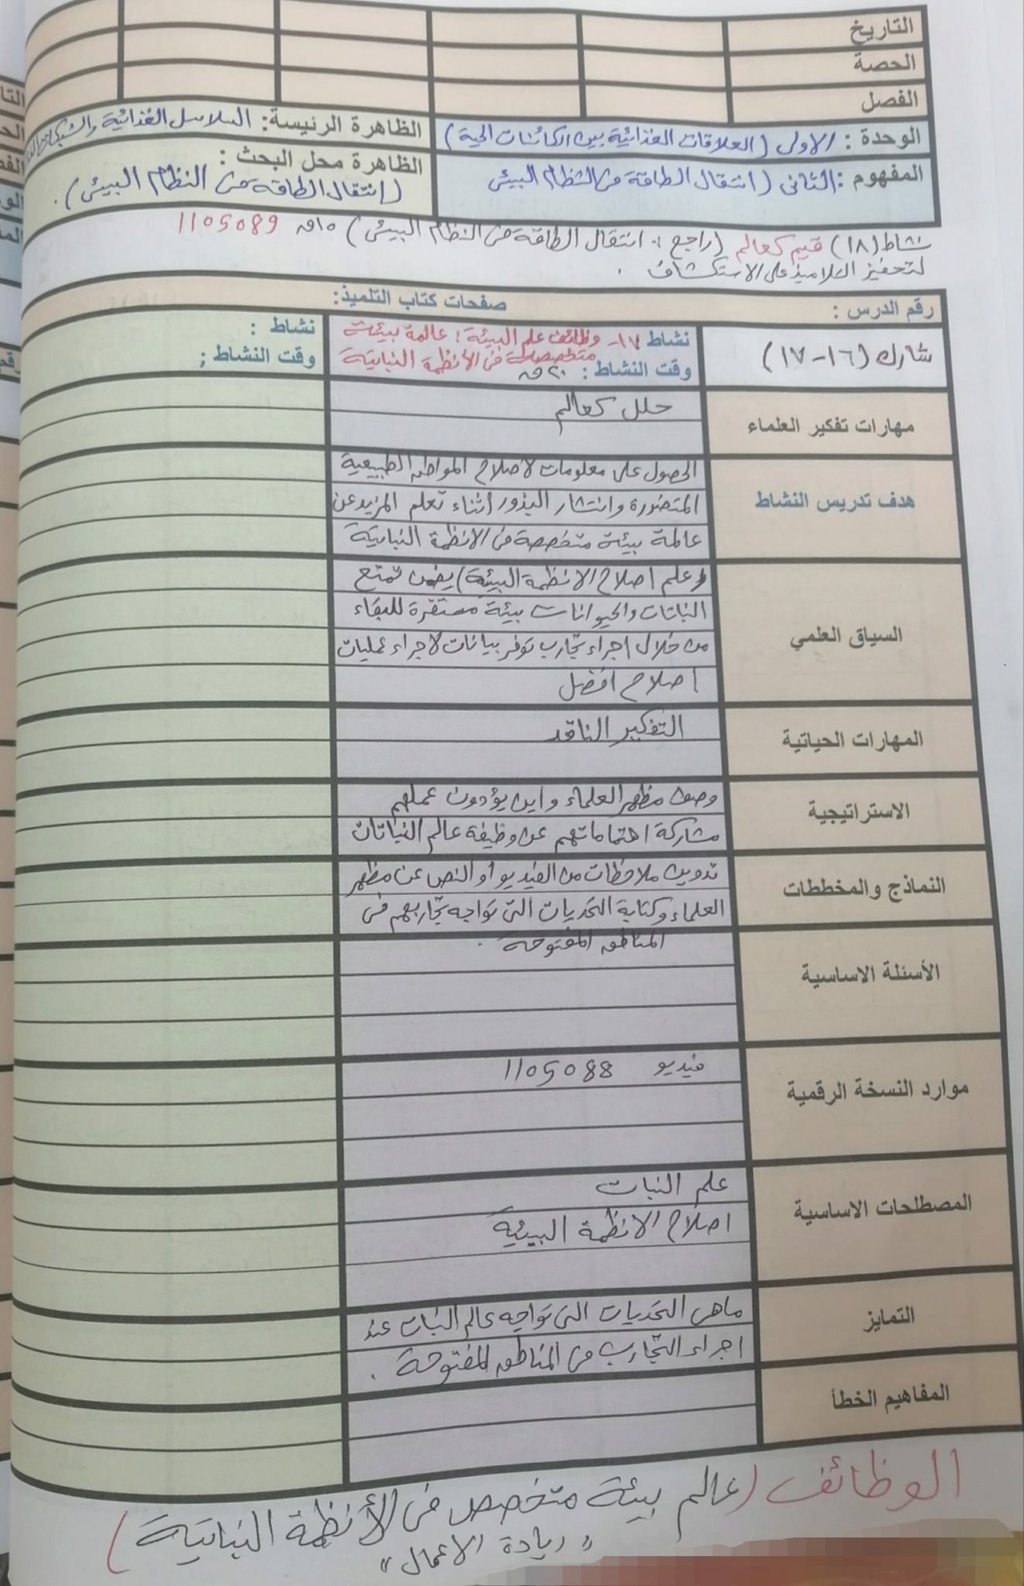 التاريخ
الحصة
الفصل
الوحدة : الاولى (العلاقات الغذائية بين الكائنات الحية)
الظاهرة الرئيسة: السلاسل الغذائية والشبكات
المفهوم : الثانى (انتقال الطاقة فى النظام البيئى
الظاهرة محل البحث :
(انتقال الطاقة فى النظام البيئى).
نشاط (١٨) قيم كعالم (راجع : انتقال الطاقة فى النظام البيئى) ١٥ق 1105089
لتحفيز التلاميذ على الاستكشاف .
رقم الدرس : صفحات كتاب التلميذ:
شارك (١٦-١٧)
نشاط ١٧- وظائف علم البيئة: عالمة بيئة
متخصصة فى الأنظمة النباتية
وقت النشاط : ٢٠ق
نشاط :
وقت النشاط ;
مهارات تفكير العلماء
حلل كعالم
هدف تدريس النشاط
الحصول على معلومات لاصلاح المواطن الطبيعية
المتضررة وانتشار البذور أثناء تعلم المزيد عن
عالمة بيئة متخصصة فى الانظمة النباتية
السياق العلمي
(علم اصلاح الانظمة البيئة) يضمن تمتع
النباتات والحيوانات بيئة مستقرة للبقاء
من خلال اجراء تجارب توفر بيانات لاجراء عمليات
اصلاح افضل
المهارات الحياتية
التفكير الناقد
الاستراتيجية
وصف مظهر العلماء واين يؤدون عملهم
مشاركة اهتماماتهم عن وظيفة عالم النباتات
النماذج والمخططات
تدوين ملاحظات من الفيديو أو النص عن مظهر
العلماء وكتابة التحديات التى تواجه تجاربهم فى
المناطق المفتوحة .
الأسئلة الاساسية
موارد النسخة الرقمية
فيديو 1105088
المصطلحات الاساسية
علم النبات
اصلاح الانظمة البيئية
التمايز
ماهى التحديات التى تواجه عالم النبات عند
اجراء التجارب فى المناطق المفتوحة .
المفاهيم الخطأ
الوظائف (عالم بيئة متخصص فى الأنظمة النباتية)
"ريادة الاعمال"